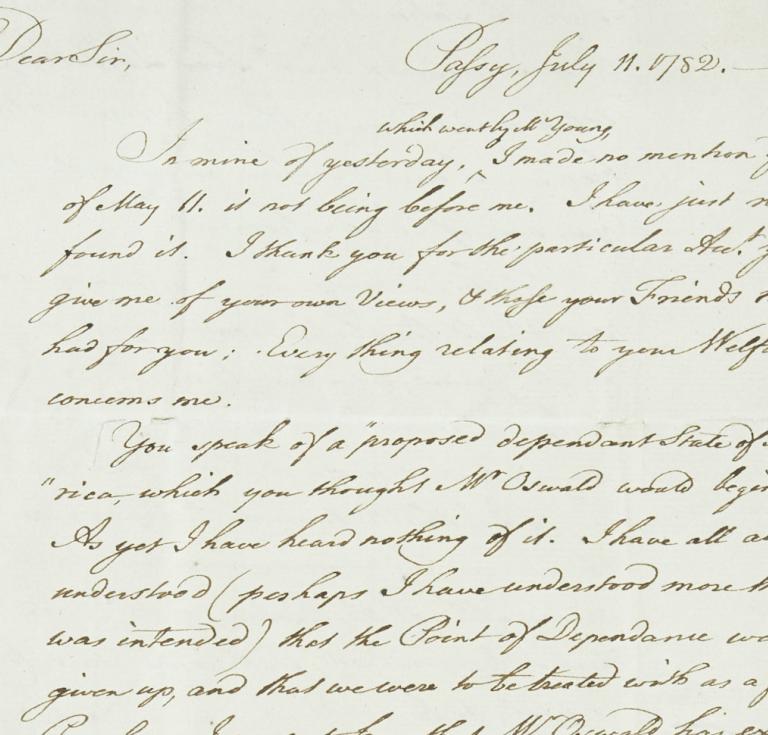 Dear Sir,
Passy, July 11. 1782.
which went by Mr Young,
In mine of yesterday, ^ I made no mention
of May 11. is not being before me. I have just
found it. I thank you for the particular Acct.
give me of your own Views, & those your Friends
had for you; Every thing relating to your
concerns me.
You speak of a "proposed dependant State of
"rica, which you thought Mr Oswald would begin
As yet I have heard nothing of it. I have all
understood (perhaps I have understood more
was intended) that the Point of Dependance
given up, and that we were to be treated with as a
Mr Oswald has